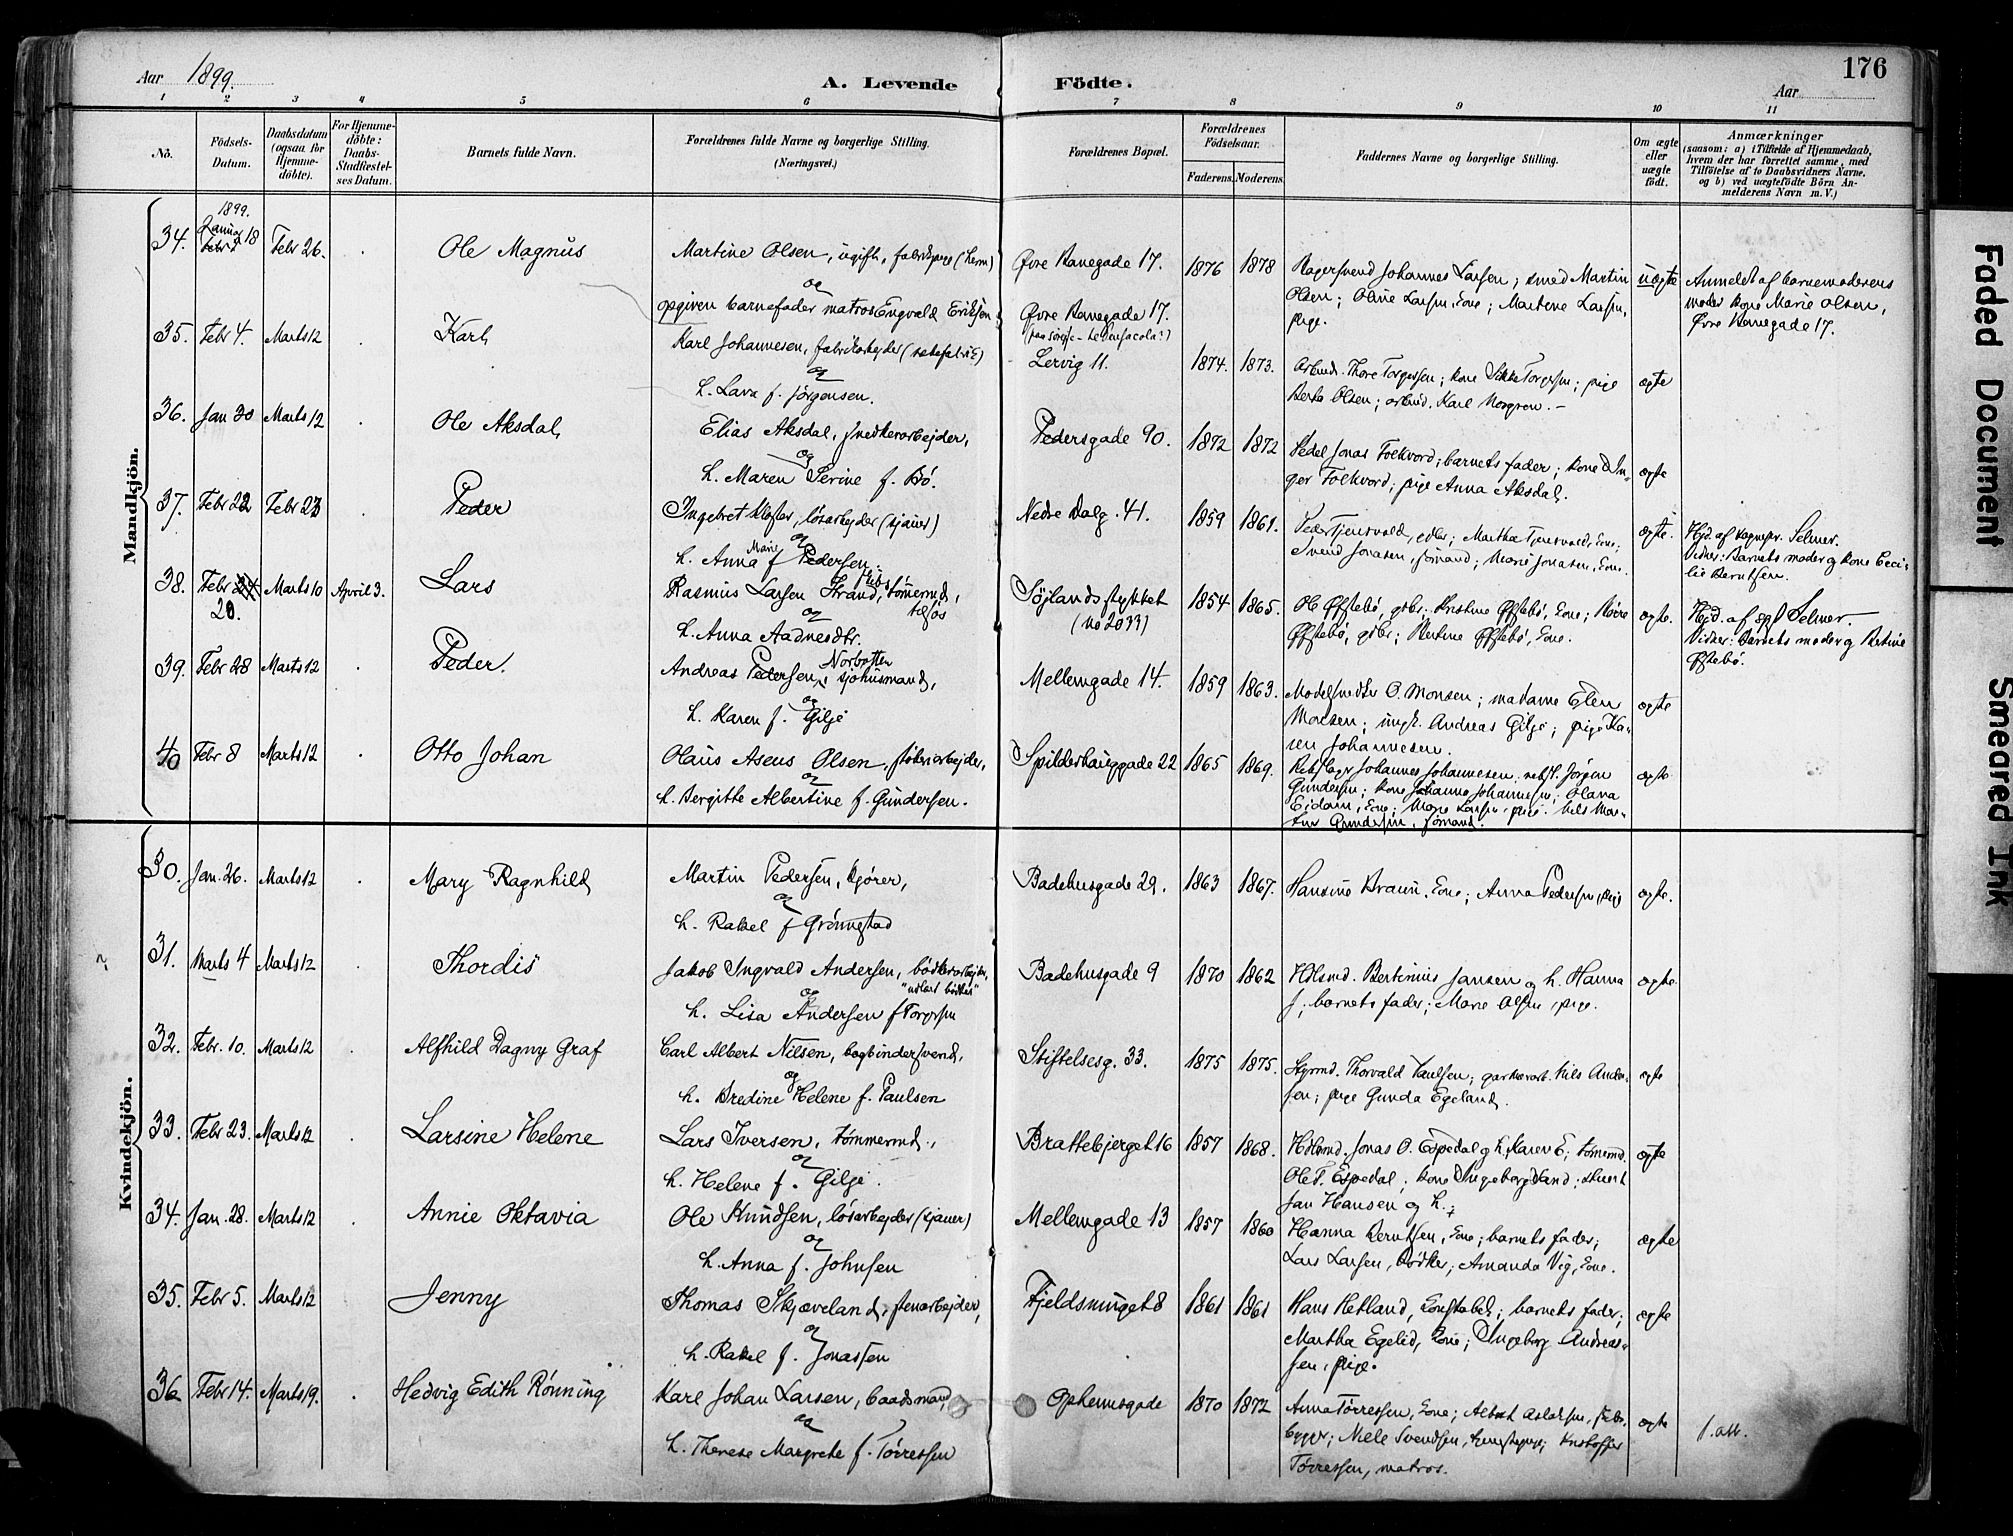 Aar 1899.
A. Levende Födte.
176
Aar
1 2 3 4 5 6 7 8 9 10 11
No.
Födsels-Datum.
Daabsdatum (ogsaa for Hjemmedöbte).
For Hjemmedöbte: Daabs-Stadfæstelses Datum.
Barnets fulde Navn.
Forældrenes fulde Navne og borgerlige Stilling. (Næringsvei.)
Forældrenes Bopæl.
Forældrenes Födselsaar.
Faderens. Moderens.
Faddernes Navne og borgerlige Stilling.
Om ægte eller uægte födt.
Anmærkninger (saasom: a) i Tilfælde af Hjemmedaab, hvem der har forrettet samme, med Tilföielse af to Daabsvidners Navne, og b) ved uægtefödte Börn Anmelderens Navn m. V.)
Mandkjön.
1899.
34. Januar 18 Febr 26. Ole Magnus
Martine Olsen, ugift, fabrikpige (herm)
og
opgiven barnefader matros Engvald Eriksen
Øvre Banegade 17.
Øvre Banegade 17.
1876 1878
Bagersvend Johannes Larsen; smed Martin
Olsen; Oline Larsen, kone; Martene Larsen,
pige.
uægte
Anmeldt af barnemoderens
moder kone Marie Olsen,
Øvre Banegade 17.
35. Febr 4. Marts 12 Karl
Karl Johannesen, fabrikarbejder
og
h. Lava f. Jørgensen.
Lervig 11.
1874. 1873.
Arbmd. Thore Torgersen; kone Torgersen; pige
Berta Olsen; arbmd. Karl
ægte
36. Jan 30 Marts 12 Ole Aksdal
Elias Aksdal, snedkerarbejder,
og
h. Maren Serine f. Bö.
Pedersgade 90.
1872 1872
Pedel Jonas Folkvord; barnets fader; kone In-
ger Folkvord; pige Anna Aksdal.
ægte
37. Febr 22 Febr 23 Peder
Ingebret Kloster, løsarbejder (sjauer)
og
h. Anna Marie f Pedersen.
Nedre Dalg. 41.
1859 1861.
Peder Tjensvold, gdbr; Martha Tjensvold, kone;
Svend Jonasen, sømand; Marie Jonasen, kone.
ægte.
Hjd af Sognepr. Selmer.
Vidner: Barnets moder og kone Ceci-
lie Berntsen.
38. Febr 20. Marts 10 April 3. Lars
Rasmus Larsen Strand, tømmermd,
og
h. Anna Aadnesdtr.
Söjlandsstykket
(No 2033)
1854 1865.
Ole Øfstebö, gdbr; Kristine Øfstebö, kone; Börre
Øfstebö, gdbr; Bertine Øfstebö, kone.
ægte.
Hjd. af spr Selmer.
Vidner: Barnets moder og Bertine
Øfstebö.
39. Febr 28 Marts 12 Peder.
Andreas Pedersen, sjøhusmand,
og
h. Karen f. Gilje
Mellemgade 14.
1859 1863.
Modelsnedker O. Monsen; madame Elen
Monsen; ungk. Andreas Gilje; pige Ka-
ren Johannesen.
ægte
40 Febr 8 Marts 12 Otto Johan
Olaus Aseus Olsen, støberiarbejder,
og
h. Bergitte Albertine f. Gundersen.
Spilderhauggade 22
1865 1869.
Rebslager Johannes Johannesen; rebsl. Jørgen
Gundersen; kone Johanne Johannesen; Olava
Eidam, kone; Marie Larsen, pige; Nils Mar-
tin Gundersen, sømand.
ægte
Kvindekjön.
30. Jan. 26. Marts 12 Mary Ragnhild
Martin Pedersen, kjører,
og
h. Rakel f Grönnestad
Badehusgade 29.
1863 1867.
Hansine Braun, kone; Anna Pedersen, pige
ægte.
31. Marts 4 Marts 12 Thordis
Jakob Ingvald Andersen, bødkerarbejder,
"udlært bødker"
og
h. Lisa Andersen f Torgersen
Badehusgade 9
1870 1862
Hdlsmd. Bertinius Jansen og h. Hanna
J; barnets fader; Marie Olsen, pige.
ægte.
32. Febr. 10. Marts 12 Alfhild Dagny Graf
Carl Albert Nilsen, bogbindersvend,
og
h. Bredine Helene f. Paulsen
Stiftelsesg. 33.
1875 1875.
Styrmd. Thorvald Paulsen; garverarb. Nils Ander-
sen; pige Gunda Egeland.
ægte
33. Febr 23. Marts 12 Larsine Helene
Lars Iversen, tömmermd.,
og
h. Helene f. Gilje.
Brattebjerget 16
1857 1868.
Hdlsmd. Jonas O. Espedal og h. Karen E; tømmermd.
Ole T. Espedal; kone Ingeborg; stuert
Jan Hansen og h.
ægte
34. Jan. 28. Marts 12 Annie Oktavia
Ole Knudsen, løsarbejder (sjauer)
og
h. Anna f. Johnsen
Mellemgade 13
1857 1860
Hanna Berntsen, kone; barnets fader;
Lars Larsen, bødker; Amanda Vig, kone.
ægte
35. Febr 5. Marts 12 Jenny
Thomas Skjæveland, stenarbejder,
og
h. Rakel f. Jonassen
Fjeldsmuget 8
1861 1861
Hans Hetland, konstabel; barnets fader;
Martha Egelid, kone; Ingeborg Andreas-
sen, pige.
ægte
36 Febr 14. Marts 19. Hedvig Edith Rönning
Karl Johan Larsen, baadsmand,
og
h. Therese Margrethe f. Törressen
Ophemsgade
1870 1872
Anna Törressen, kone; Albert Aslaksen,
bygger; Niels Svendsen; Kristoffer
Törressen, matros.
ægte
1. att.
Faded Document
Smeared Ink